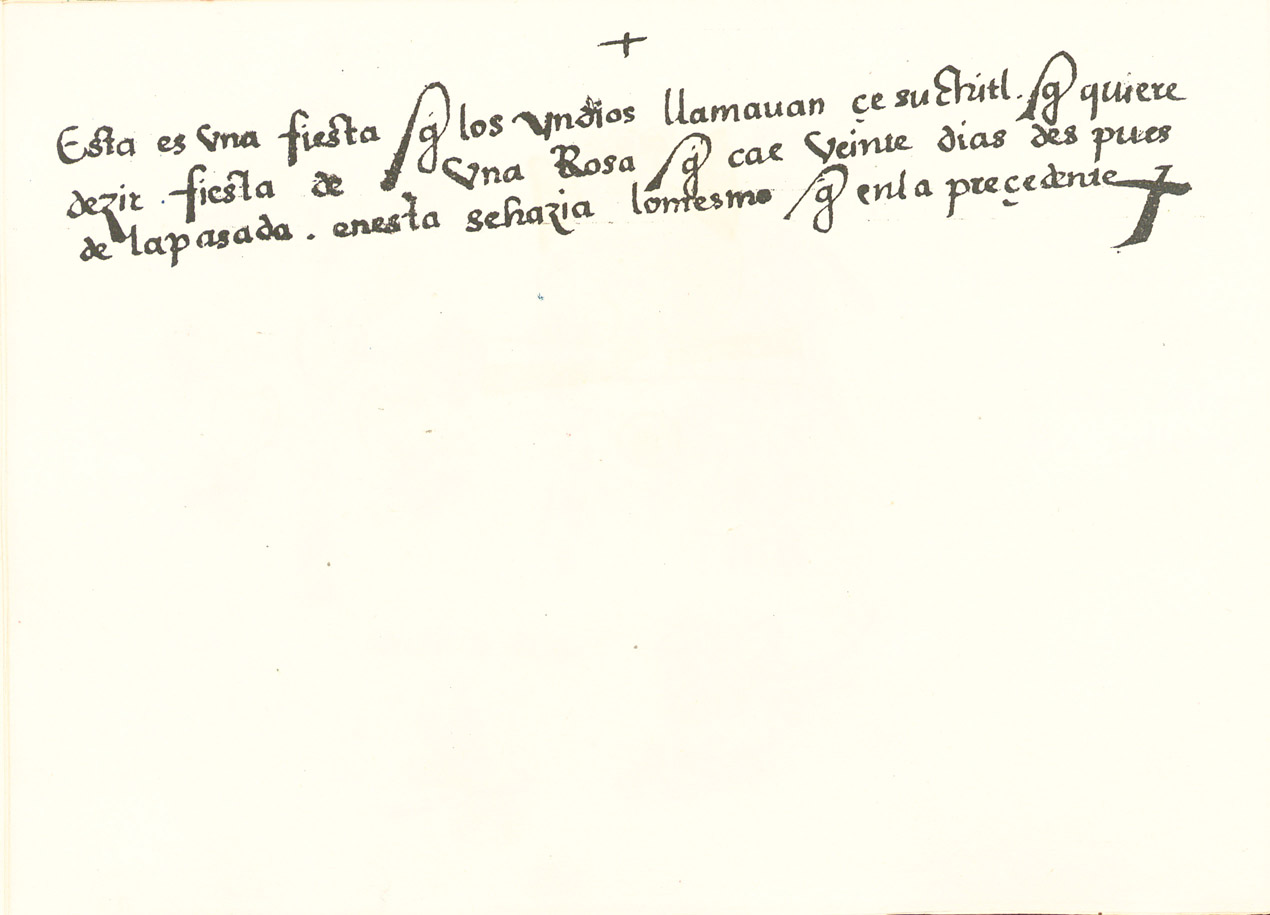 +
Esta es vna fiesta q̃ los yndios llamauan çe suchitl. q̃ quiere
dezir . fiesta de vna Rosa q̃ cae veinte dias des pues
de lapasada . enesta sehazia lomesmo q̃ enla preçedente